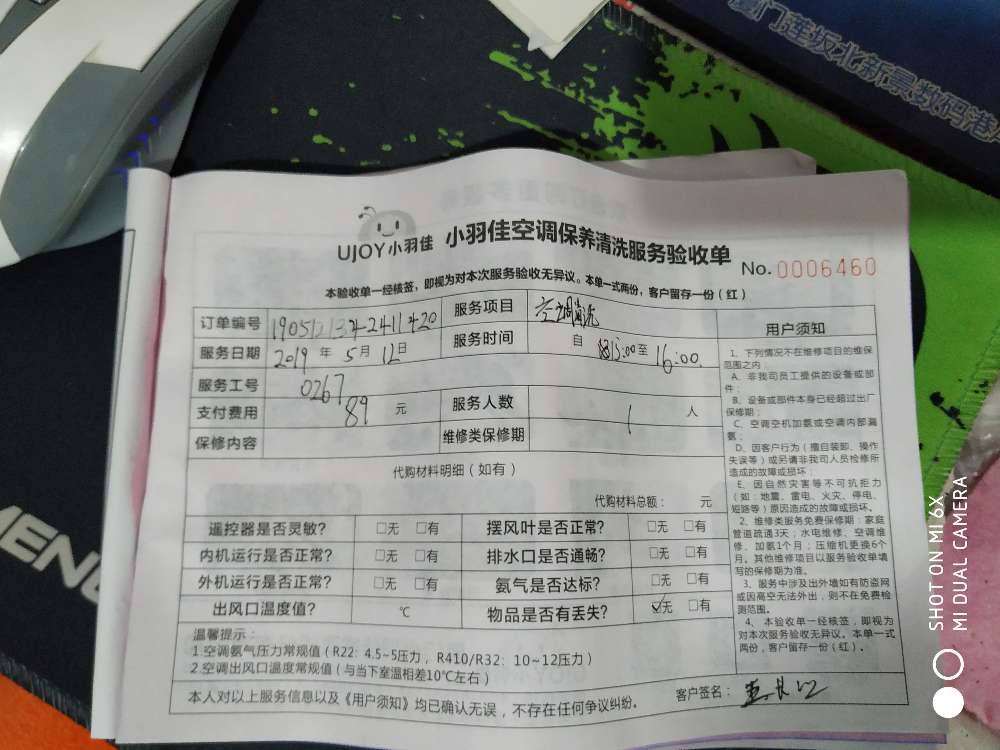 厦门莲坂北新景数码港
UJOY小羽佳 小羽佳空调保养清洗服务验收单
No. 0006460
本验收单一经核签，即视为对本次服务验收无异议。本单一式两份，客户留存一份（红）
订单编号 服务项目 空调清洗
服务日期 2019 年 5 月 12 日 服务时间 自 15:00 至 16:00
服务工号 0267
支付费用 89 元 服务人数 1 人
保修内容 维修类保修期
代购材料明细（如有）
代购材料总额： 元
遥控器是否灵敏? □无 □有 摆风叶是否正常? □无 □有
内机运行是否正常? □无 □有 排水口是否通畅? □无 □有
外机运行是否正常? □无 □有 氨气是否达标? □无 □有
出风口温度值? ℃ 物品是否有丢失? ☑无 □有
温馨提示：
1.空调氨气压力常规值（R22: 4.5~5压力，R410/R32: 10~12压力）
2.空调出风口温度常规值（与当下室温相差10℃左右）
本人对以上服务信息以及《用户须知》均已确认无误，不存在任何争议纠纷。
客户签名：
用户须知
1、下列情况不在维修项目的维保
范围之内：
A、非我司员工提供的设备或部
件；
B、设备或部件本身已经超过出厂
保修期；
C、空调空机加氨或空调内部漏
氨；
D、因客户行为（擅自装卸、操作
失误等）或另请非我司人员检修所
造成的故障或损坏；
E、因自然灾害等不可抗拒力
（如：地震、雷电、火灾、停电、
短路等）原因造成的故障或损坏。
2、维修类服务免费保修期：家庭
管道疏通3天；水电维修、空调维
修、加氨1个月；压缩机更换6个
月。其他维修项目以服务验收单填
写的保修期为准。
3、服务中涉及出外墙如有防盗网
或因高空无法外出，则不在免费检
测范围。
4、本验收单一经核签，即视为
对本次服务验收无异议。本单一式
两份，客户留存一份（红）。
SHOT ON MI 6X
MI DUAL CAMERA